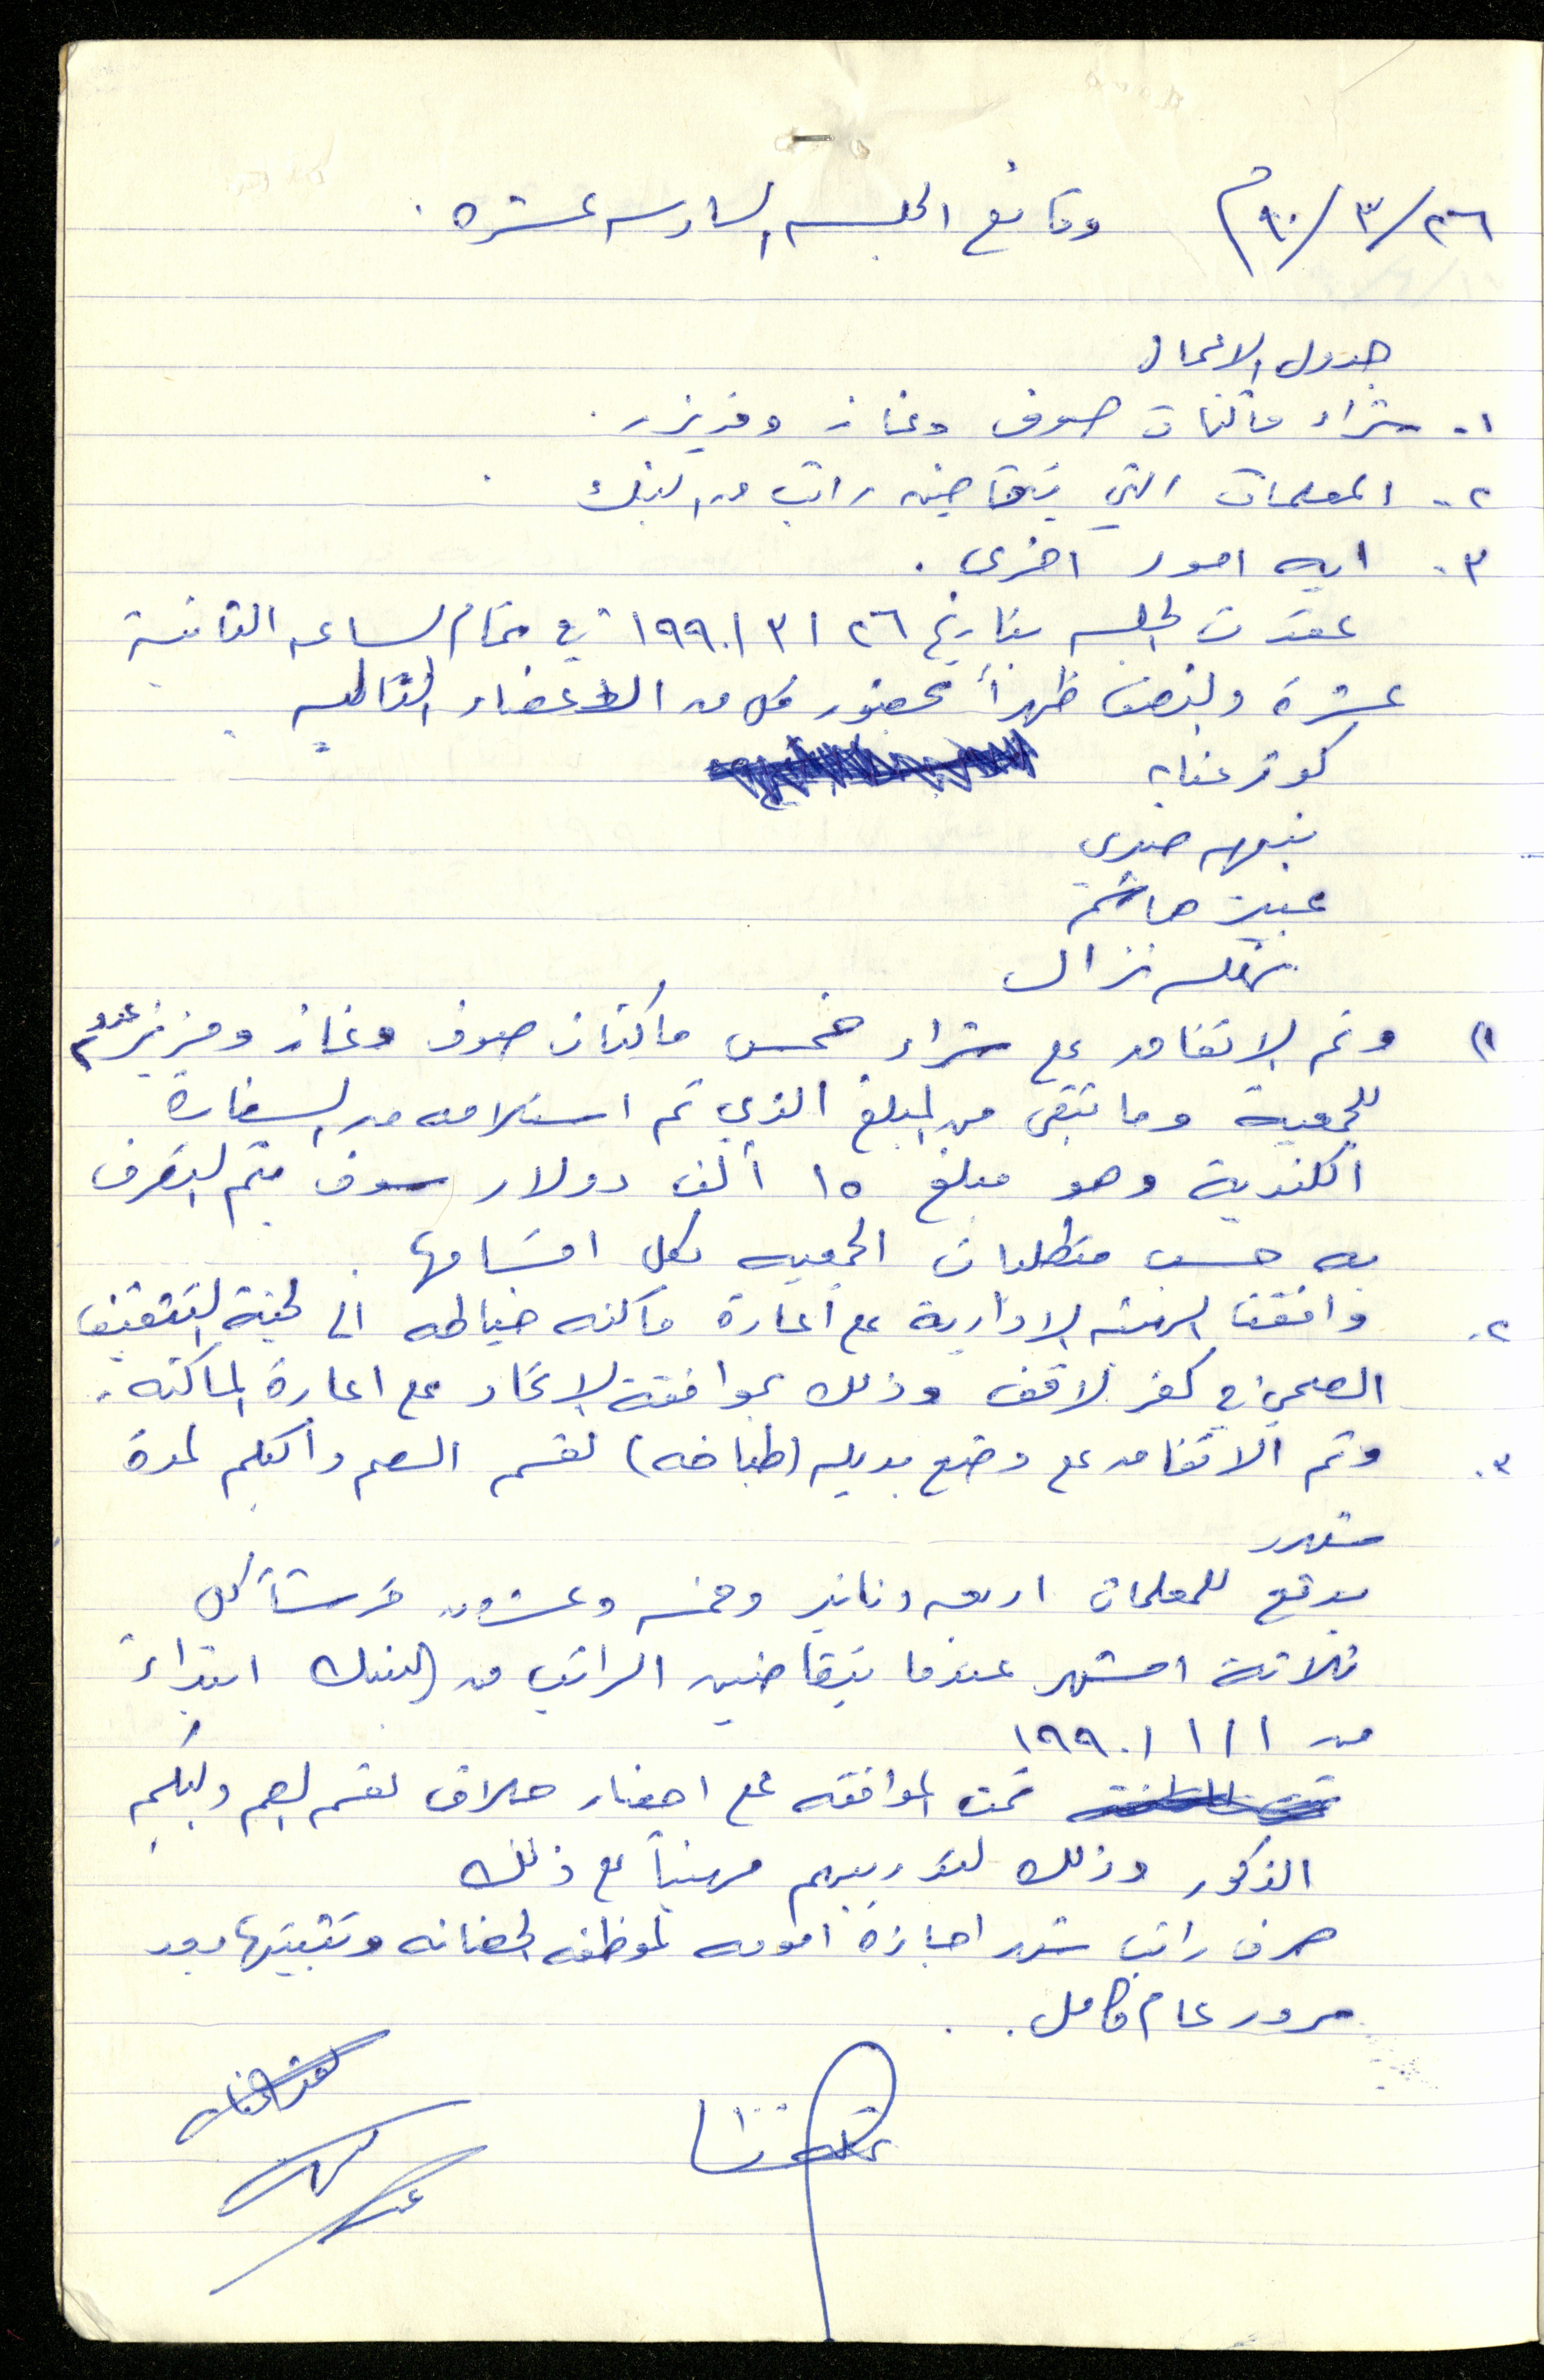 ٢٦/٣/٩٠م وقائع الجلسه السادسه عشره .
جدول الاعمال
١- شراء ماكنات صوف وغاز وفريزر .
٢- المعلمات التي يتقاضين راتب من البنك .
٣- ايه امور اخرى .
عقدت الجلسه بتاريخ ٢٦/٣/١٩٩٠ في تمام الساعه الثانية
عشرة ونصف ظهراً بحضور كل من الاعضاء التاليه
كوثر عنايه
نبيهه صبري
عبير هاشم
نزال
١) وتم الاتفاق على شراء خمس ماكنات صوف وغاز وفريزر عدد ٢
للجمعية وما تبقى من المبلغ الذي تم استلامه من السفارة
الكندية وهو مبلغ ١٥ ألف دولار سوف يتم التصرف
به حسب متطلبات الجمعيه بكل اقسامها .
٢. وافقت الهيئه الادارية على اعارة ماكنه خياطه الى لجنة التثقيف
الصحي في كفر لاقف وذلك بموافقة الاتحاد على اعارة الماكنه .
٣. وتم الاتفاق على وضع بديله (طباخه) لقسم الصم والبكم لمدة
شهر
يدفع للمعلمات اربعه دنانير وخمسه وعشرون قرشاً كل
ثلاثة اشهر عندما يتقاضين الراتب من البنك ابتداءً
من ١/١/١٩٩٠
تمت الموافقه على احضار حلاق لقسم الصم والبكم
الذكور وذلك لتدريبهم مهنياً على ذلك
صرف راتب شهر اجازة امومه لموظفه الحضانه وتثبيتها بعد
مرور عام كامل .